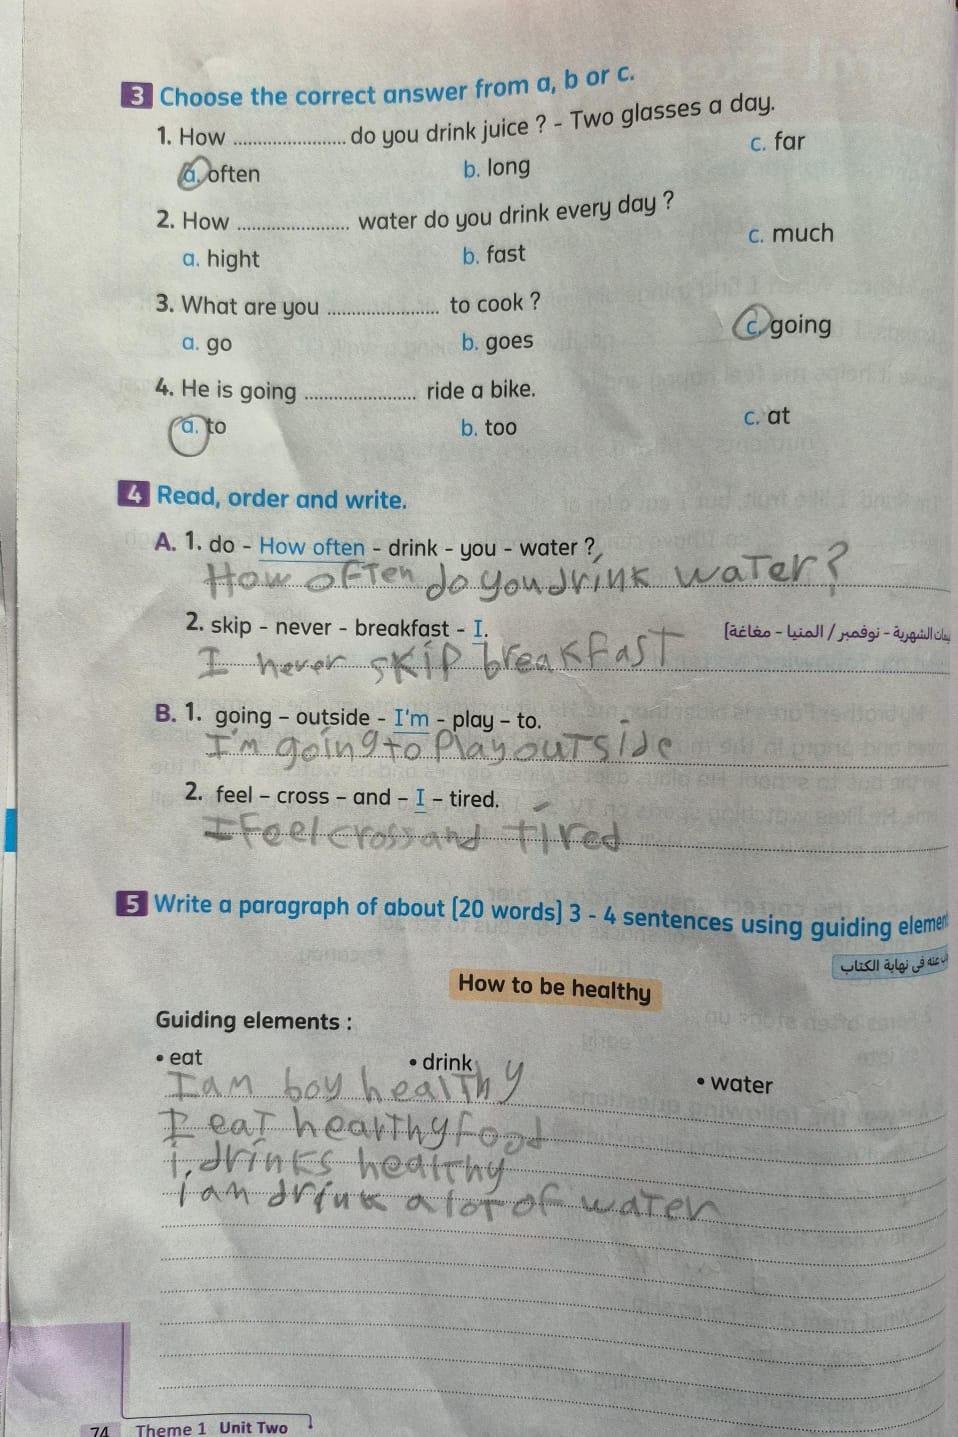 3 Choose the correct answer from a, b or c.
1. How ..................... do you drink juice ? - Two glasses a day.
a. often b. long c. far
2. How ..................... water do you drink every day ?
a. hight b. fast c. much
3. What are you ..................... to cook ?
a. go b. goes c. going
4. He is going ..................... ride a bike.
a. to b. too c. at
4 Read, order and write.
A. 1. do - How often - drink - you - water ?
How often do you drink water?
2. skip - never - breakfast - I.
الشهرية - نوفمبر / المنيا - مغاغة]
I never skip breakfast
B. 1. going - outside - I'm - play - to.
I'm going to play outside
2. feel - cross - and - I - tired.
I feel cross and tired
5 Write a paragraph of about (20 words) 3 - 4 sentences using guiding
عنه فى نهاية الكتاب
How to be healthy
Guiding elements :
• eat • drink • water
I am boy healthy
I eat healthy food
i, drinks healthy
i am drink a lot of water
74 Theme 1 Unit Two